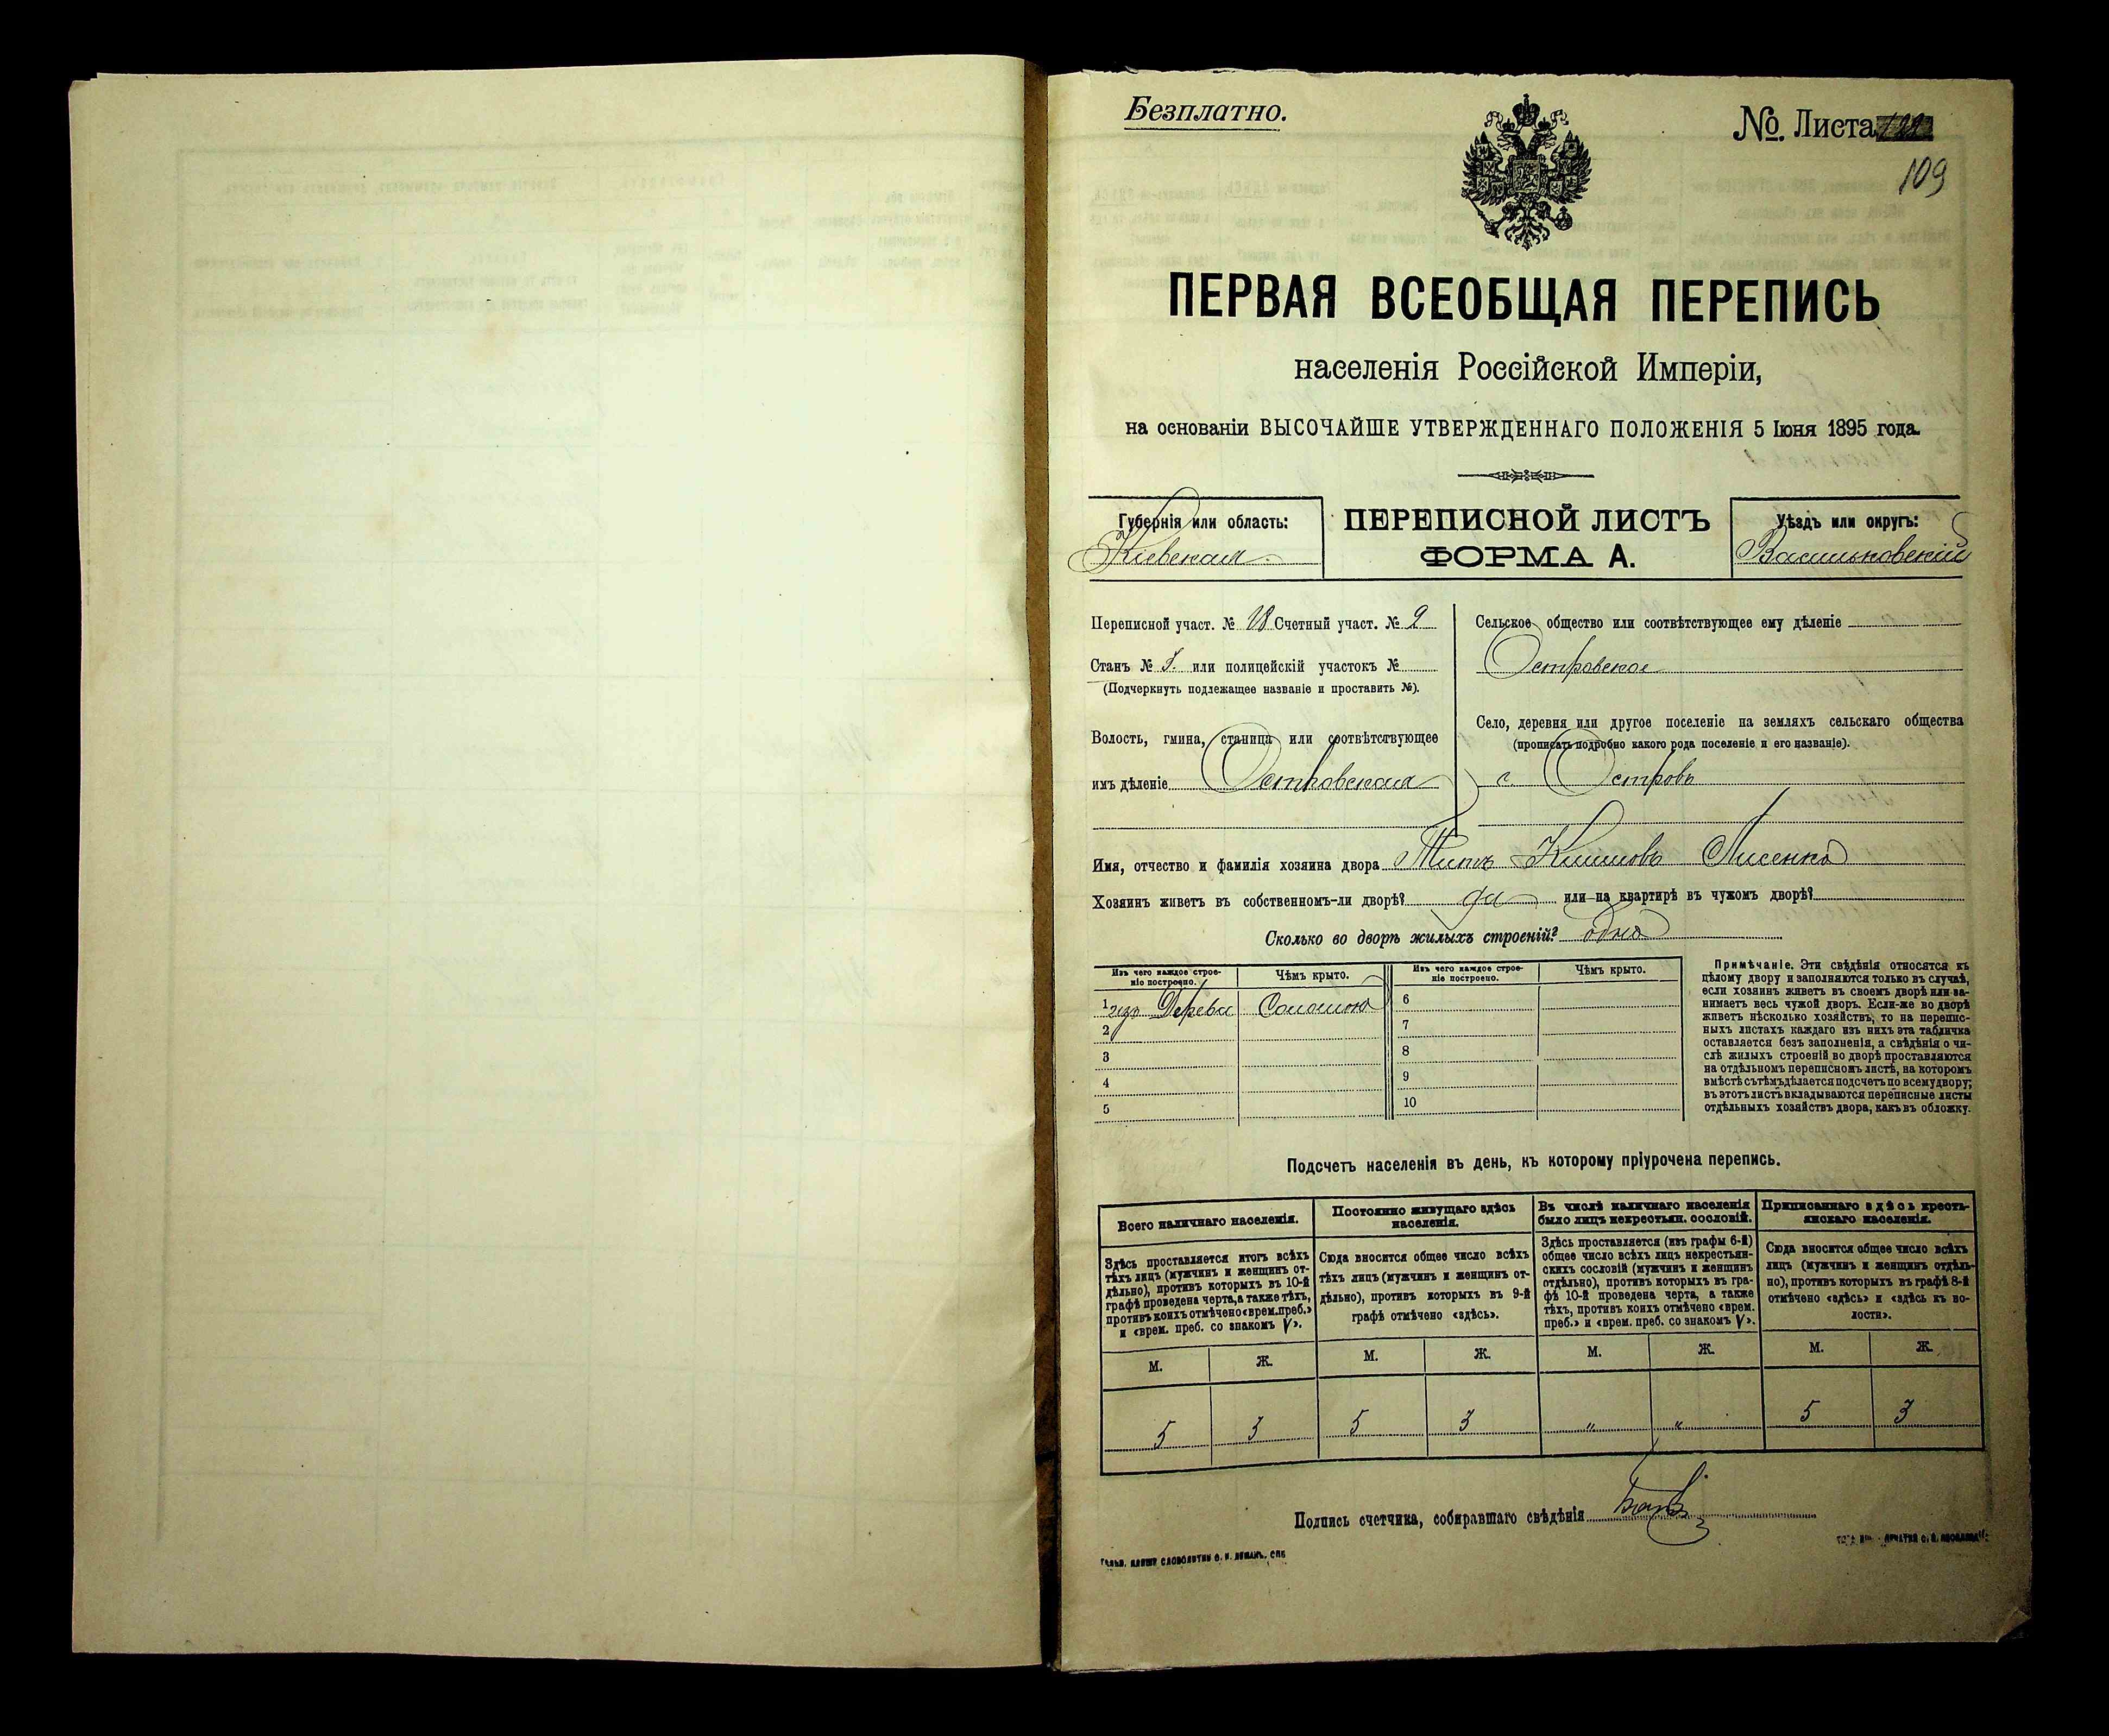 Безплатно.
№. Листа
109
ПЕРВАЯ ВСЕОБЩАЯ ПЕРЕПИСЬ
населенія Россійской Имперіи,
на основаніи ВЫСОЧАЙШЕ УТВЕРЖДЕННАГО ПОЛОЖЕНІЯ 5 Іюня 1895 года.
Губернія или область:
Кіевская
ПЕРЕПИСНОЙ ЛИСТЪ
ФОРМА А.
Уѣздъ или округъ:
Васильковскій
Переписной участ. № 18 Счетный участ. № 9
Станъ № или полицейскій участокъ №
(Подчеркнуть подлежащее названіе и проставить №).
Волость, гмина, станица или соотвѣтствующее
имъ дѣленіе Островская
Сельское общество или соотвѣтствующее ему дѣленіе
Островское
Село, деревня или другое поселеніе на земляхъ сельскаго общества
(прописать подробно какого рода поселеніе и его названіе).
с. Островъ
Имя, отчество и фамилія хозяина двора Титъ Климовъ Лисенко
Хозяинъ живетъ въ собственномъ-ли дворѣ? да или на квартирѣ въ чужомъ дворѣ?
Сколько во дворѣ жилыхъ строеній? одно
Изъ чего каждое строе-
ніе построено.
Чѣмъ крыто.
Изъ чего каждое строе-
ніе построено.
Чѣмъ крыто.
1 изъ Дерева Соломою
2
3
4
5
6
7
8
9
10
Примѣчаніе. Эти свѣдѣнія относятся къ
цѣлому двору и заполняются только въ случаѣ,
если хозяинъ живетъ въ своемъ дворѣ или за-
нимаетъ весь чужой дворъ. Если-же во дворѣ
живетъ нѣсколько хозяйствъ, то на перепис-
ныхъ листахъ каждаго изъ нихъ эта табличка
оставляется безъ заполненія, а свѣдѣнія о чи-
слѣ жилыхъ строеній во дворѣ проставляются
на отдѣльномъ переписномъ листѣ, на которомъ
вмѣстѣ съ тѣмъ дѣлается подсчетъ по всему двору;
въ этотъ листъ вкладываются переписные листы
отдѣльныхъ хозяйствъ двора, какъ въ обложку.
Подсчетъ населенія въ день, къ которому пріурочена перепись.
Всего наличнаго населенія.
Здѣсь проставляется итогъ всѣхъ
тѣхъ лицъ (мужчинъ и женщинъ от-
дѣльно), противъ которыхъ въ 10-й
графѣ проведена черта, а также тѣхъ,
противъ коихъ отмѣчено «врем. преб.»
и «врем. преб. со знакомъ V».
Постоянно живущаго здѣсь
населенія.
Сюда вносится общее число всѣхъ
тѣхъ лицъ (мужчинъ и женщинъ от-
дѣльно), противъ которыхъ въ 9-й
графѣ отмѣчено «здѣсь».
Въ числѣ наличнаго населенія
было лицъ некрестьян. сословій.
Здѣсь проставляется (изъ графы 6-й)
общее число всѣхъ лицъ некрестьян-
скихъ сословій (мужчинъ и женщинъ
отдѣльно), противъ которыхъ въ гра-
фѣ 10-й проведена черта, а также
тѣхъ, противъ коихъ отмѣчено «врем.
преб.» и «врем. преб. со знакомъ V».
Приписаннаго здѣсь кресть-
янскаго населенія.
Сюда вносится общее число всѣхъ
лицъ (мужчинъ и женщинъ отдѣль-
но), противъ которыхъ въ графѣ 8-й
отмѣчено «здѣсь» и «здѣсь къ во-
лости».
М. Ж. М. Ж. М. Ж. М. Ж.
5 3 5 3 " " 5 3
Подпись счетчика, собиравшаго свѣдѣнія